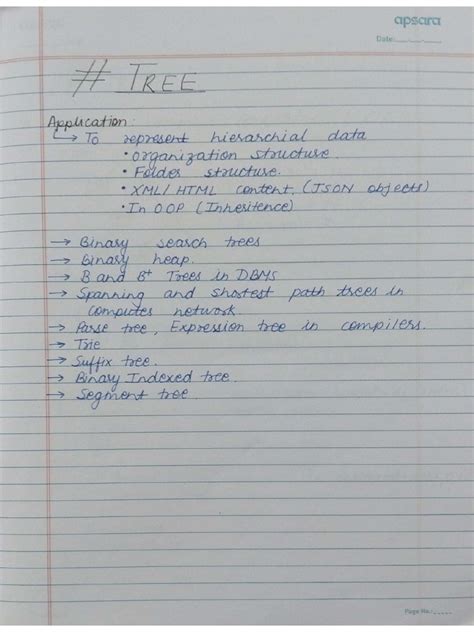 apsara
Date:
# TREE
Application:
↳ To represent hierarchial data
• Organization structure.
• Folder structure.
• XML/ HTML content, (JSON objects)
• In OOP (Inheritence)
→ Binary search trees
→ Binary heap.
→ B and B+ Trees in DBMS
→ Spanning and shortest path trees in
computer network.
→ Parse tree, Expression tree in compilers.
→ Trie
→ Suffix tree.
→ Binary Indexed tree.
→ Segment tree.
Page No.: